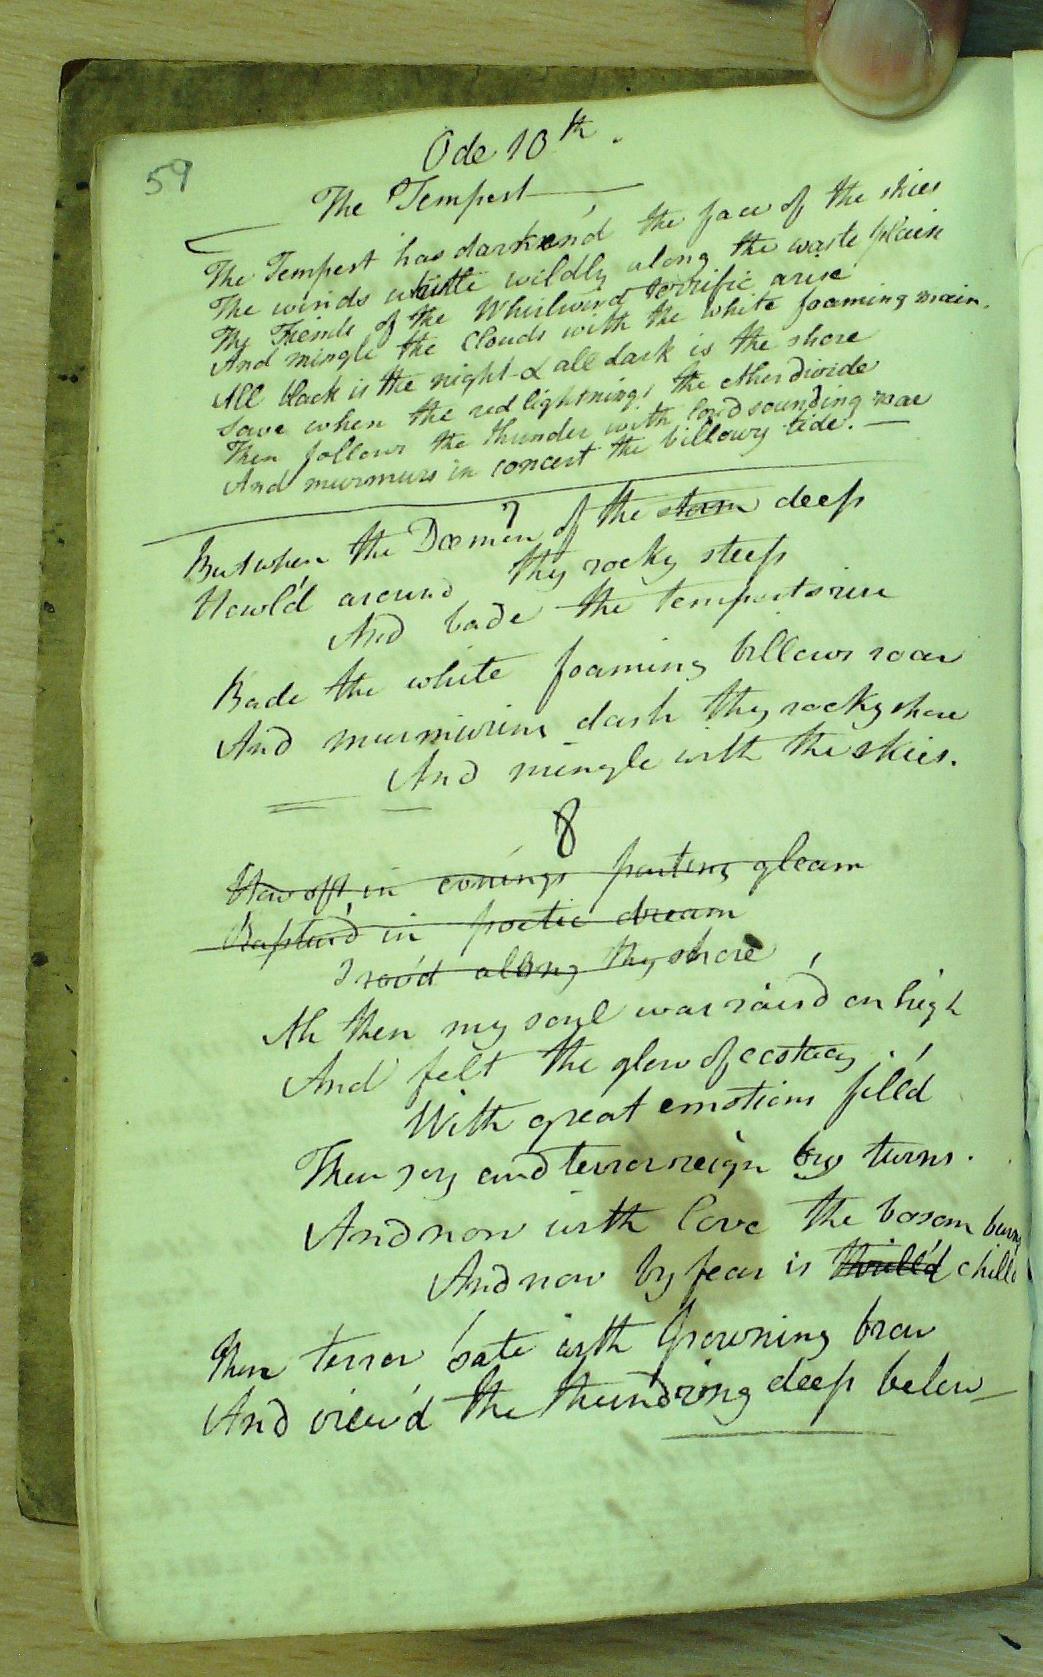 59
Ode 10th.
The Tempest
The Tempest has darkend the face of the skies
The winds whistle wildly along the waste plain
The Fiends of the Whirlwind terrific arise
And mingle the Clouds with the white foaming main.
All black is the night & all dark is the shore
Save when the red lightnings the ether divide
Then follows the thunder with loud sounding roar
And murmurs in concert the billowy tide. —
7
But when the Dæmon of the storm deep
Howl'd around thy rocky steep
And bade the tempests rise
Bade the white foaming billows roar
And murmuring dash thy rocky shore
And mingle with the skies.
8
How oft in evnings parting gleam
Raptur'd in poetic dream
I rov'd along thy shore
Ah then my soul was rais'd on high
And felt the glow of ecstacy.
With great emotions fill'd
Then joy and terror reign by turns.
And now with love the bosom burns
And now by fear is thrill'd chilld
Then terror sate with frowning brow
And view'd the thundring deep below —